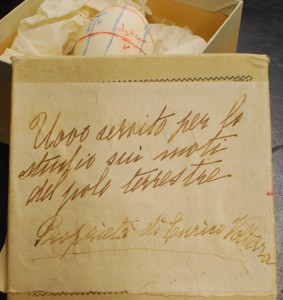 Uovo servito per lo
studio sui moti
del polo terrestre
Proprietà di Enrico Volterra